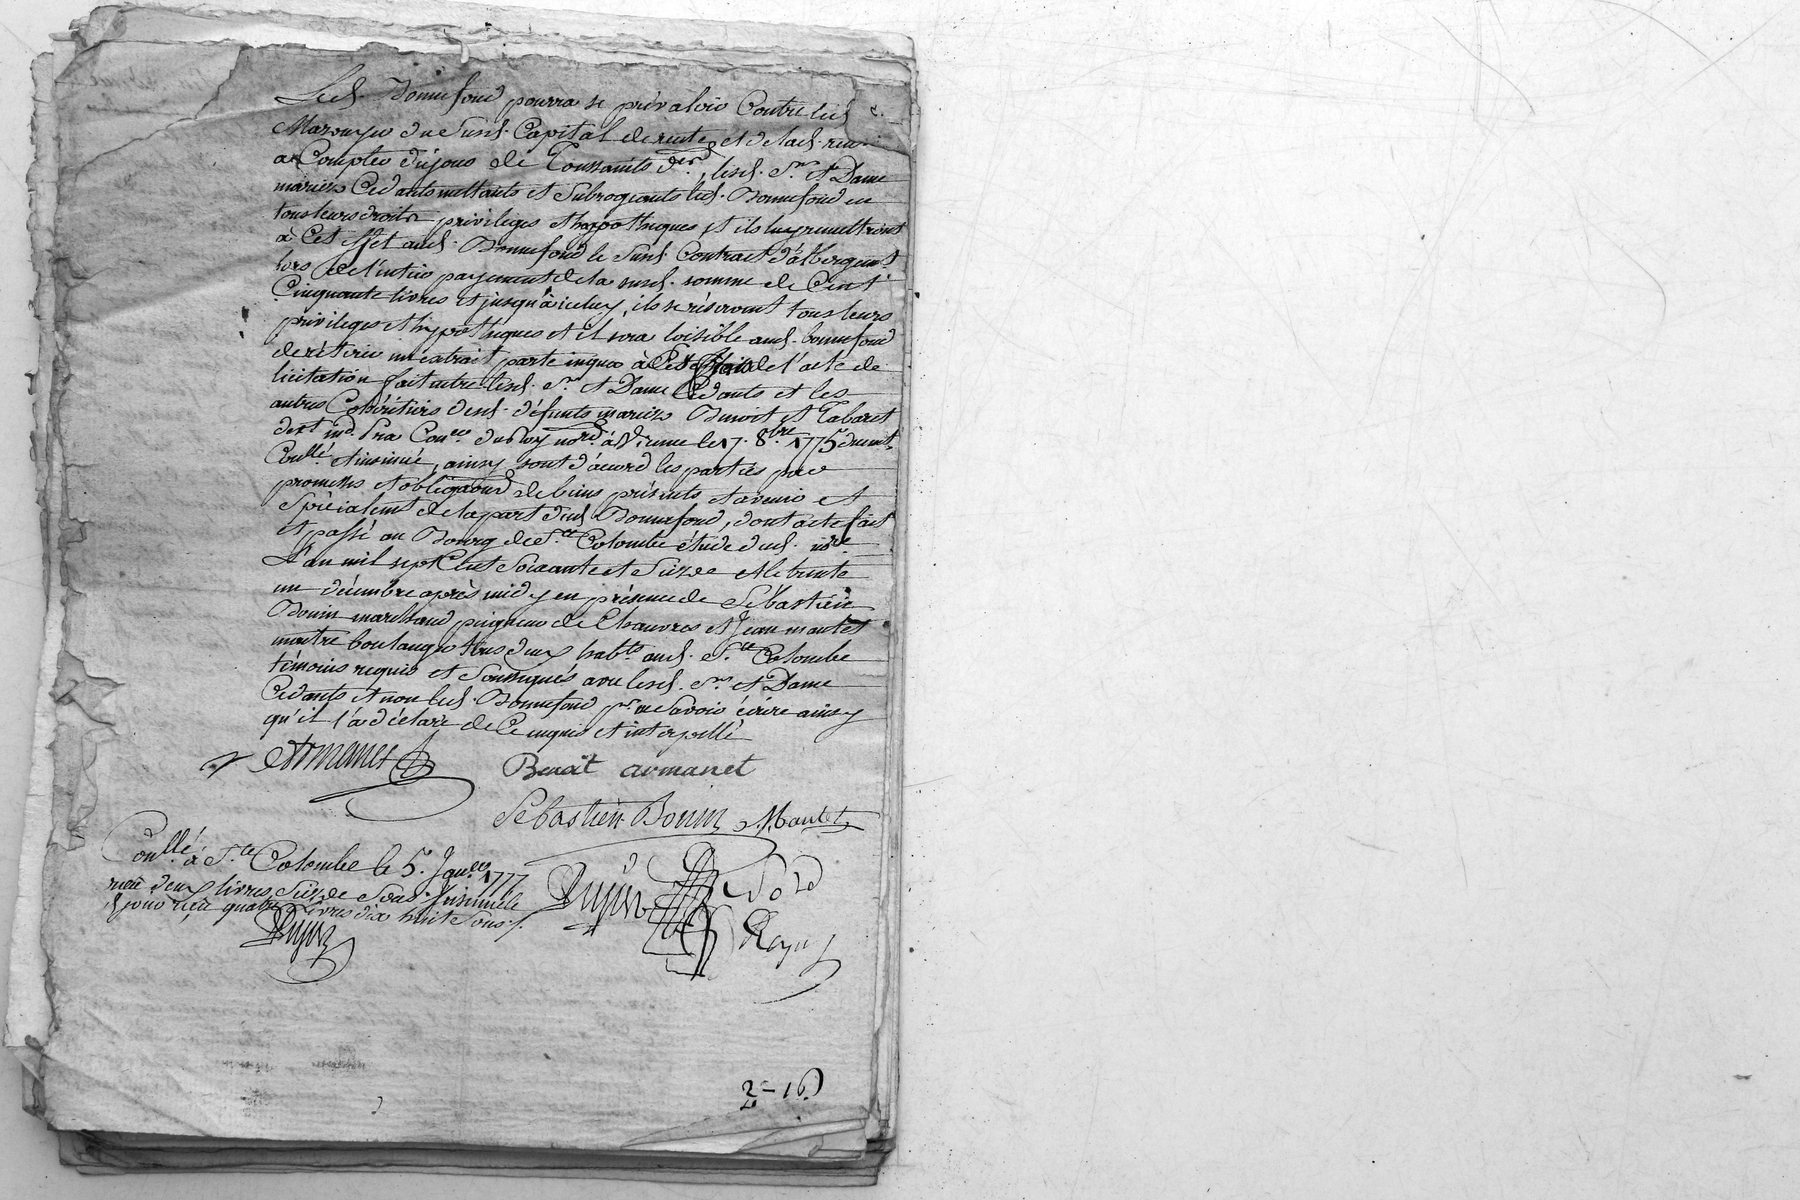 Led. Bonnefond pourra se prévaloir Contre led
du susd. Capital de rente et de lad.
a Compter du jour de Toussaints der. lesd. Sr. et Dame
mariés Cedants mettants et Subrogeants led. Bonnefond en
tous leurs droits privileges et hypotheques et ils luy remettront
à Cet effet aud. Bonnefond le Susd. Contract d'albergemt.
lors de l'entier payement de la susd. somme de Cent
Cinquante livres et jusqu'à iceluy, ils se réservent tous leurs
privileges et hypotheques et il sera loisible aud. bonnefond
de rétirer un extrait parte in qua à Ses frais de l'acte de
licitation fait entre lesd. Sr. et Dame Cedants et les
autres Cohéritiers desd. défunts mariés Benoit et Tabaret
du Roy nore. à Vienne le 17. 8.bre 1775 duemt.
Conllé. et insinué, ainsy sont d'accord les parties par
promesses et obligaons. de biens présents et avenir et
Spécialemt. de la part dud. Bonnefond, dont acte fait
et passé au Bourg de Ste. Colombe étude dud. nore.
L'an mil sept Cent Soixante et Seize et le trente
un décembre après midy en présence de Sébastien
Bonin marchand peigneur de Chanvres et Jean mantet
maitre boulanger tous deux habts. aud. Ste. Colombe
témoins requis et Soussignés avec lesd. Sr. et Dame
Cedants et non led. Bonnefond pr. ne Savoir écrire ainsy
qu'il l'a déclaré de Ce enquis et interpellé
Armanet
Benoit armanet
Sébastien Bonin Mantet
Conllé. à Ste. Colombe le 5. Janer. 1777
reçu deux livres Seize Sous. Insinué le
d. jour reçu quatre livres dix huit Sous.
Dujin
2=16